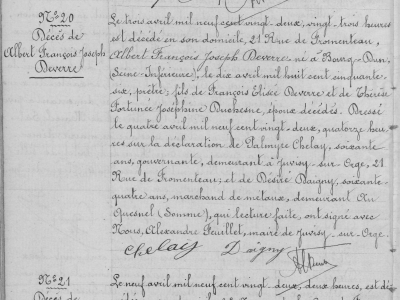 N° 20
Décès de
Albert François Joseph
Deverre
Le trois avril mil neuf cent vingt-deux, vingt-trois heures
est décédé en son domicile, 21 Rue de Fromenteau,
Albert François Joseph Deverre né à Bourg-Dun
Seine-Inférieure, le dix avril mil huit cent cinquante
six, prêtre; fils de François Elisée Deverre et de Thérèse
Fortunée Joséphine Duchesne, époux décédés. Dressé
le quatre avril mil neuf cent vingt-deux, quatorze heu-
res sur la déclaration de Palmyre Chelay, soixante
ans, gouvernante, demeurant à Juvisy-sur-Orge, 21
Rue de Fromenteau; et de Désiré Daigny, soixante-
quatre ans, marchand de métaux, demeurant Au
Quesnel (Somme), qui lecture faite, ont signé avec
Nous, Alexandre Feuillet, maire de Juvisy-sur-Orge.
Chelay Daigny
N° 21
Décès de
Le neuf avril mil neuf cent vingt-deux, deux heures, est dé